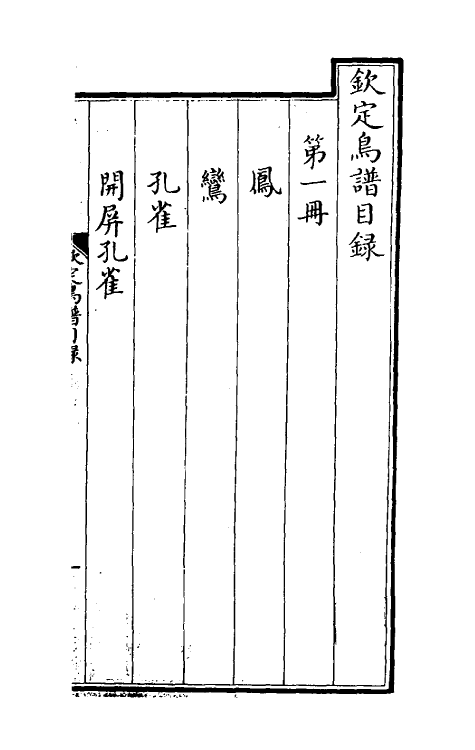 欽定鳥譜目録
第一冊
鳳
鸞
孔雀
開屏孔雀
欽定鳥譜目録